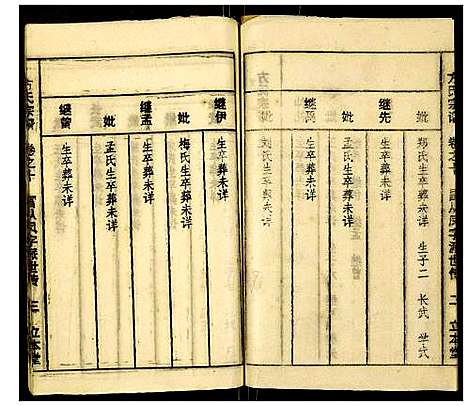 方氏宗譜 卷之十 二 立本堂
鄭氏生卒葬未详 生子二 长武 世武
继先 生卒葬未详
妣 刘氏生卒葬未详
生卒葬未详
继伊 生卒葬未详
妣 梅氏生卒葬未详
继孟 生卒葬未详
妣 孟氏生卒葬未详
继曾 生卒葬未详
方氏宗譜 卷之十 三 立本堂